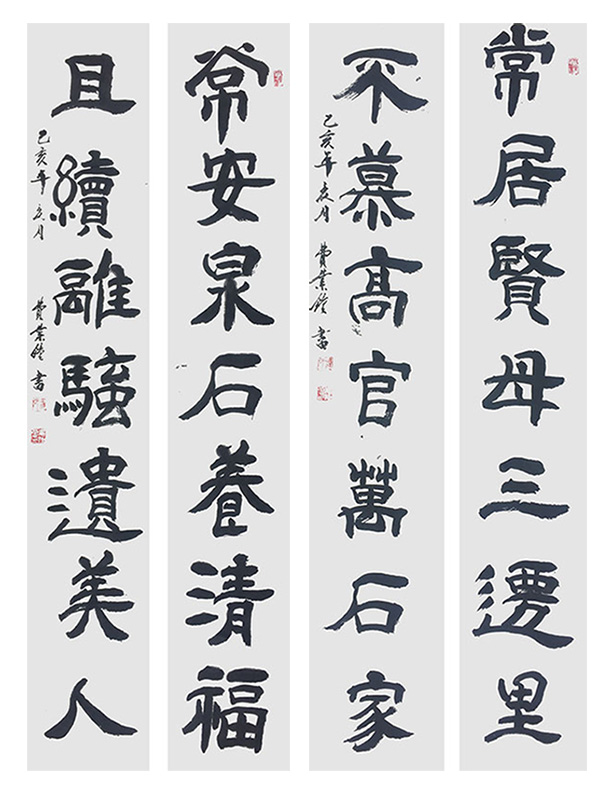 常居賢母三遷里
不慕高官萬石家
己亥年夏月 費業 書
常安泉石養清福
且續離騷遺美人
己亥年夏月 費業 書